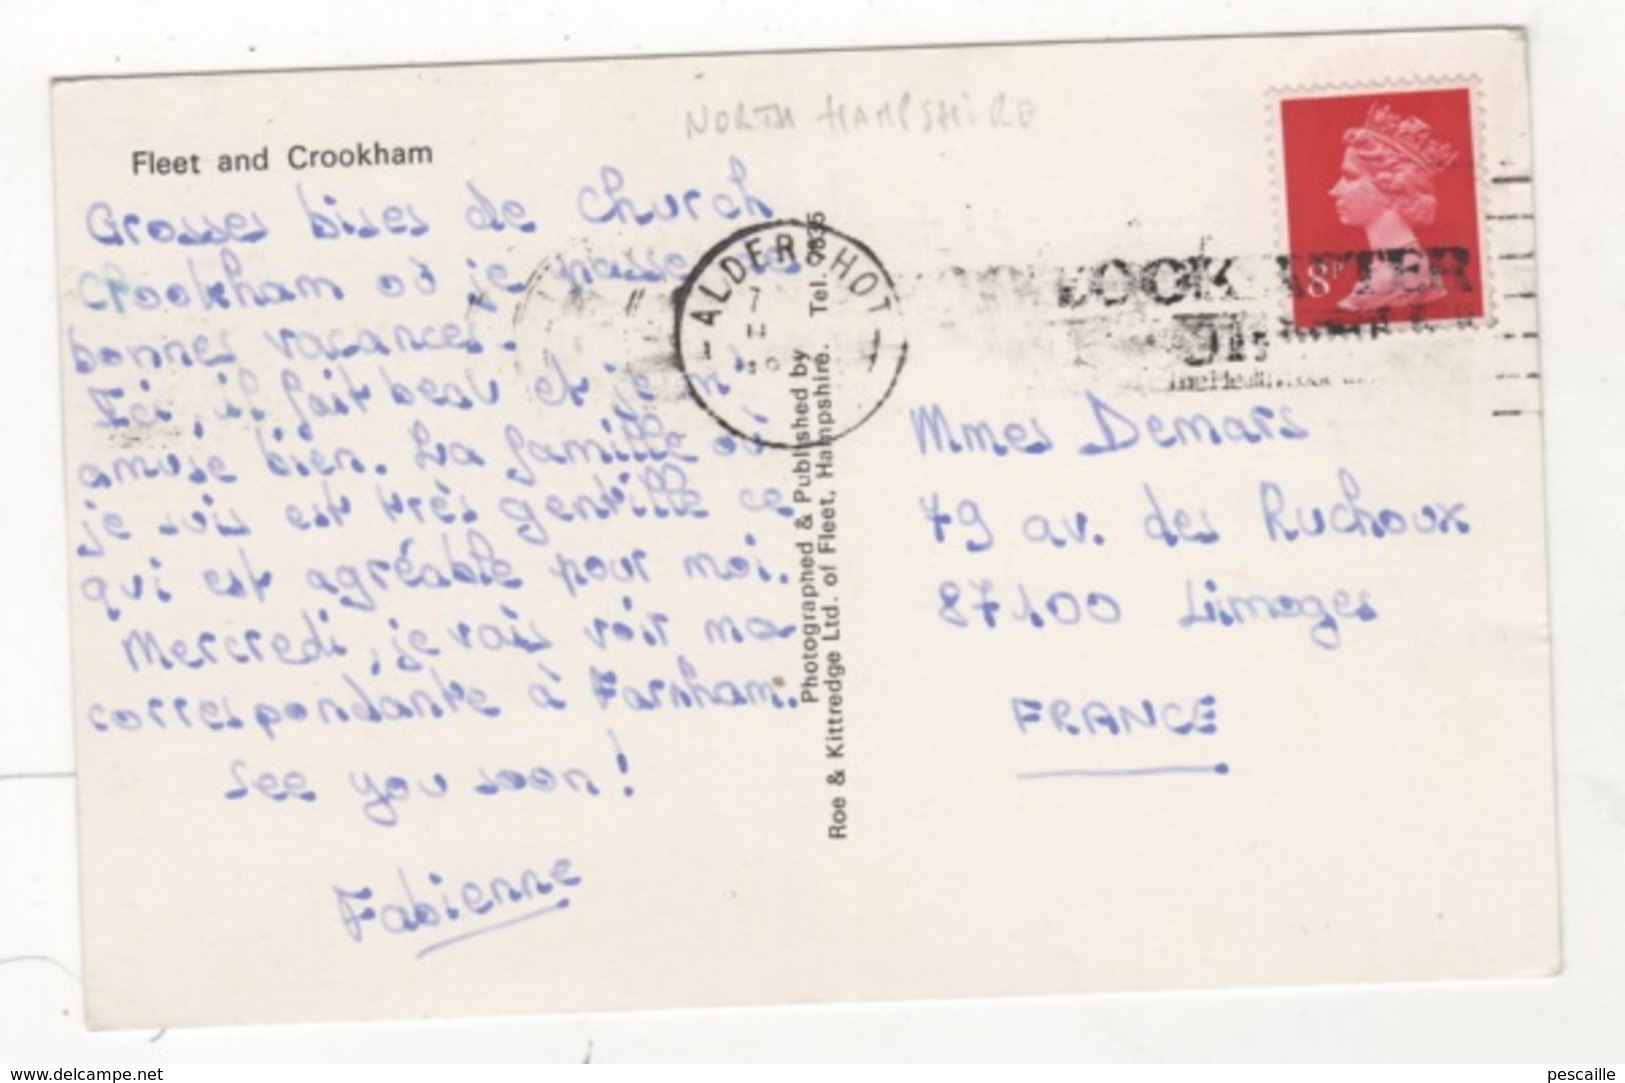 NORTH HAMPSHIRE
Fleet and Crookham
Grosses bises de Church
Crookham où je passe de
bonnes vacances.
Ici, il fait beau et je m'
amuse bien. La famille où
je suis est très gentille ce
qui est agréable pour moi.
Mercredi, je vais voir ma
correspondante à Farnham.
See you soon!
Fabienne
ALDERSHOT
7
Photographed & Published by
Roe & Kittredge Ltd. of Fleet, Hampshire. Tel. 9835
8P
LOOK AFTER
Mmes Demars
79 av. des Ruchoux
87100 Limoges
FRANCE
www.delcampe.net
pescaille